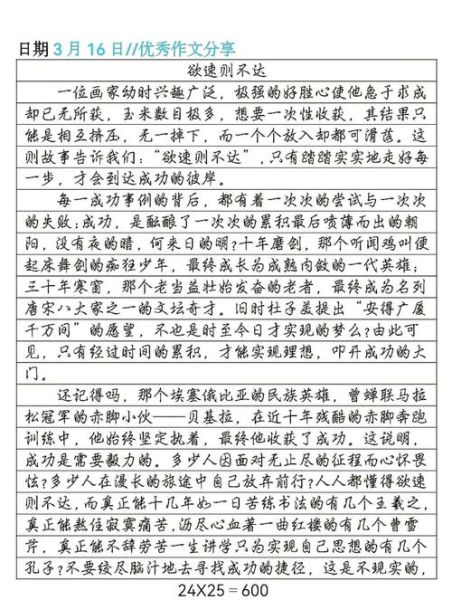 日期3月16日//优秀作文分享
欲速则不达
一位画家幼时兴趣广泛，极强的好胜心使他急于求成
却已无所获，玉米数目极多，想要一次性收获，其结果只
能是相互挤压，无一掉下，而一个个放入却都可滑落。这
则故事告诉我们：“欲速则不达”,只有踏踏实实地走好每
一步，才会到达成功的彼岸。
每一成功事例的背后，都有着一次次的尝试与一次次
的失败;成功，是酝酿了一次次的累积最后喷薄而出的朝
阳，没有夜的暗，何来日的明?十年磨剑，那个听闻鸡叫便
起床舞剑的痴狂少年，最终成长为成熟内敛的一代英雄;
三十年寒窗，那个老当益壮始发奋的老者，最终成为名列
唐宋八大家之一的文坛奇才。旧时杜子美提出“安得广厦
千万间”的愿望，不也是时至今日才实现的梦么?由此可
见，只有经过时间的累积，才能实现理想，叩开成功的大
门。
还记得吗，那个埃塞俄比亚的民族英雄，曾蝉联马拉
松冠军的赤脚小伙——贝基拉，在近十年残酷的赤脚奔跑
训练中，他始终坚定执着，最终他收获了成功。这说明，
成功是需要毅力的。多少人因面对无止尽的征程而心怀畏
怯?多少人在漫长的旅途中自己放弃前行?人人都懂得欲速
则不达,而真正能十几年如一日苦练书法的有几个王羲之,
真正能熬住寂寞痛苦,沥尽心血著一曲红楼的有几个曹雪
芹，真正能不辞劳苦一生讲学只为实现自己思想的有几个
孔子?不要绞尽脑汁地去寻找成功的捷径，这是不现实的,
24X25=600